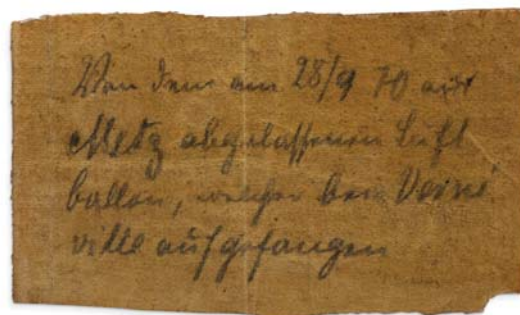 Von dem am 28/9 70 aus
Metz abgelassenen Luft
ballon, welcher bei
ville aufgefangen